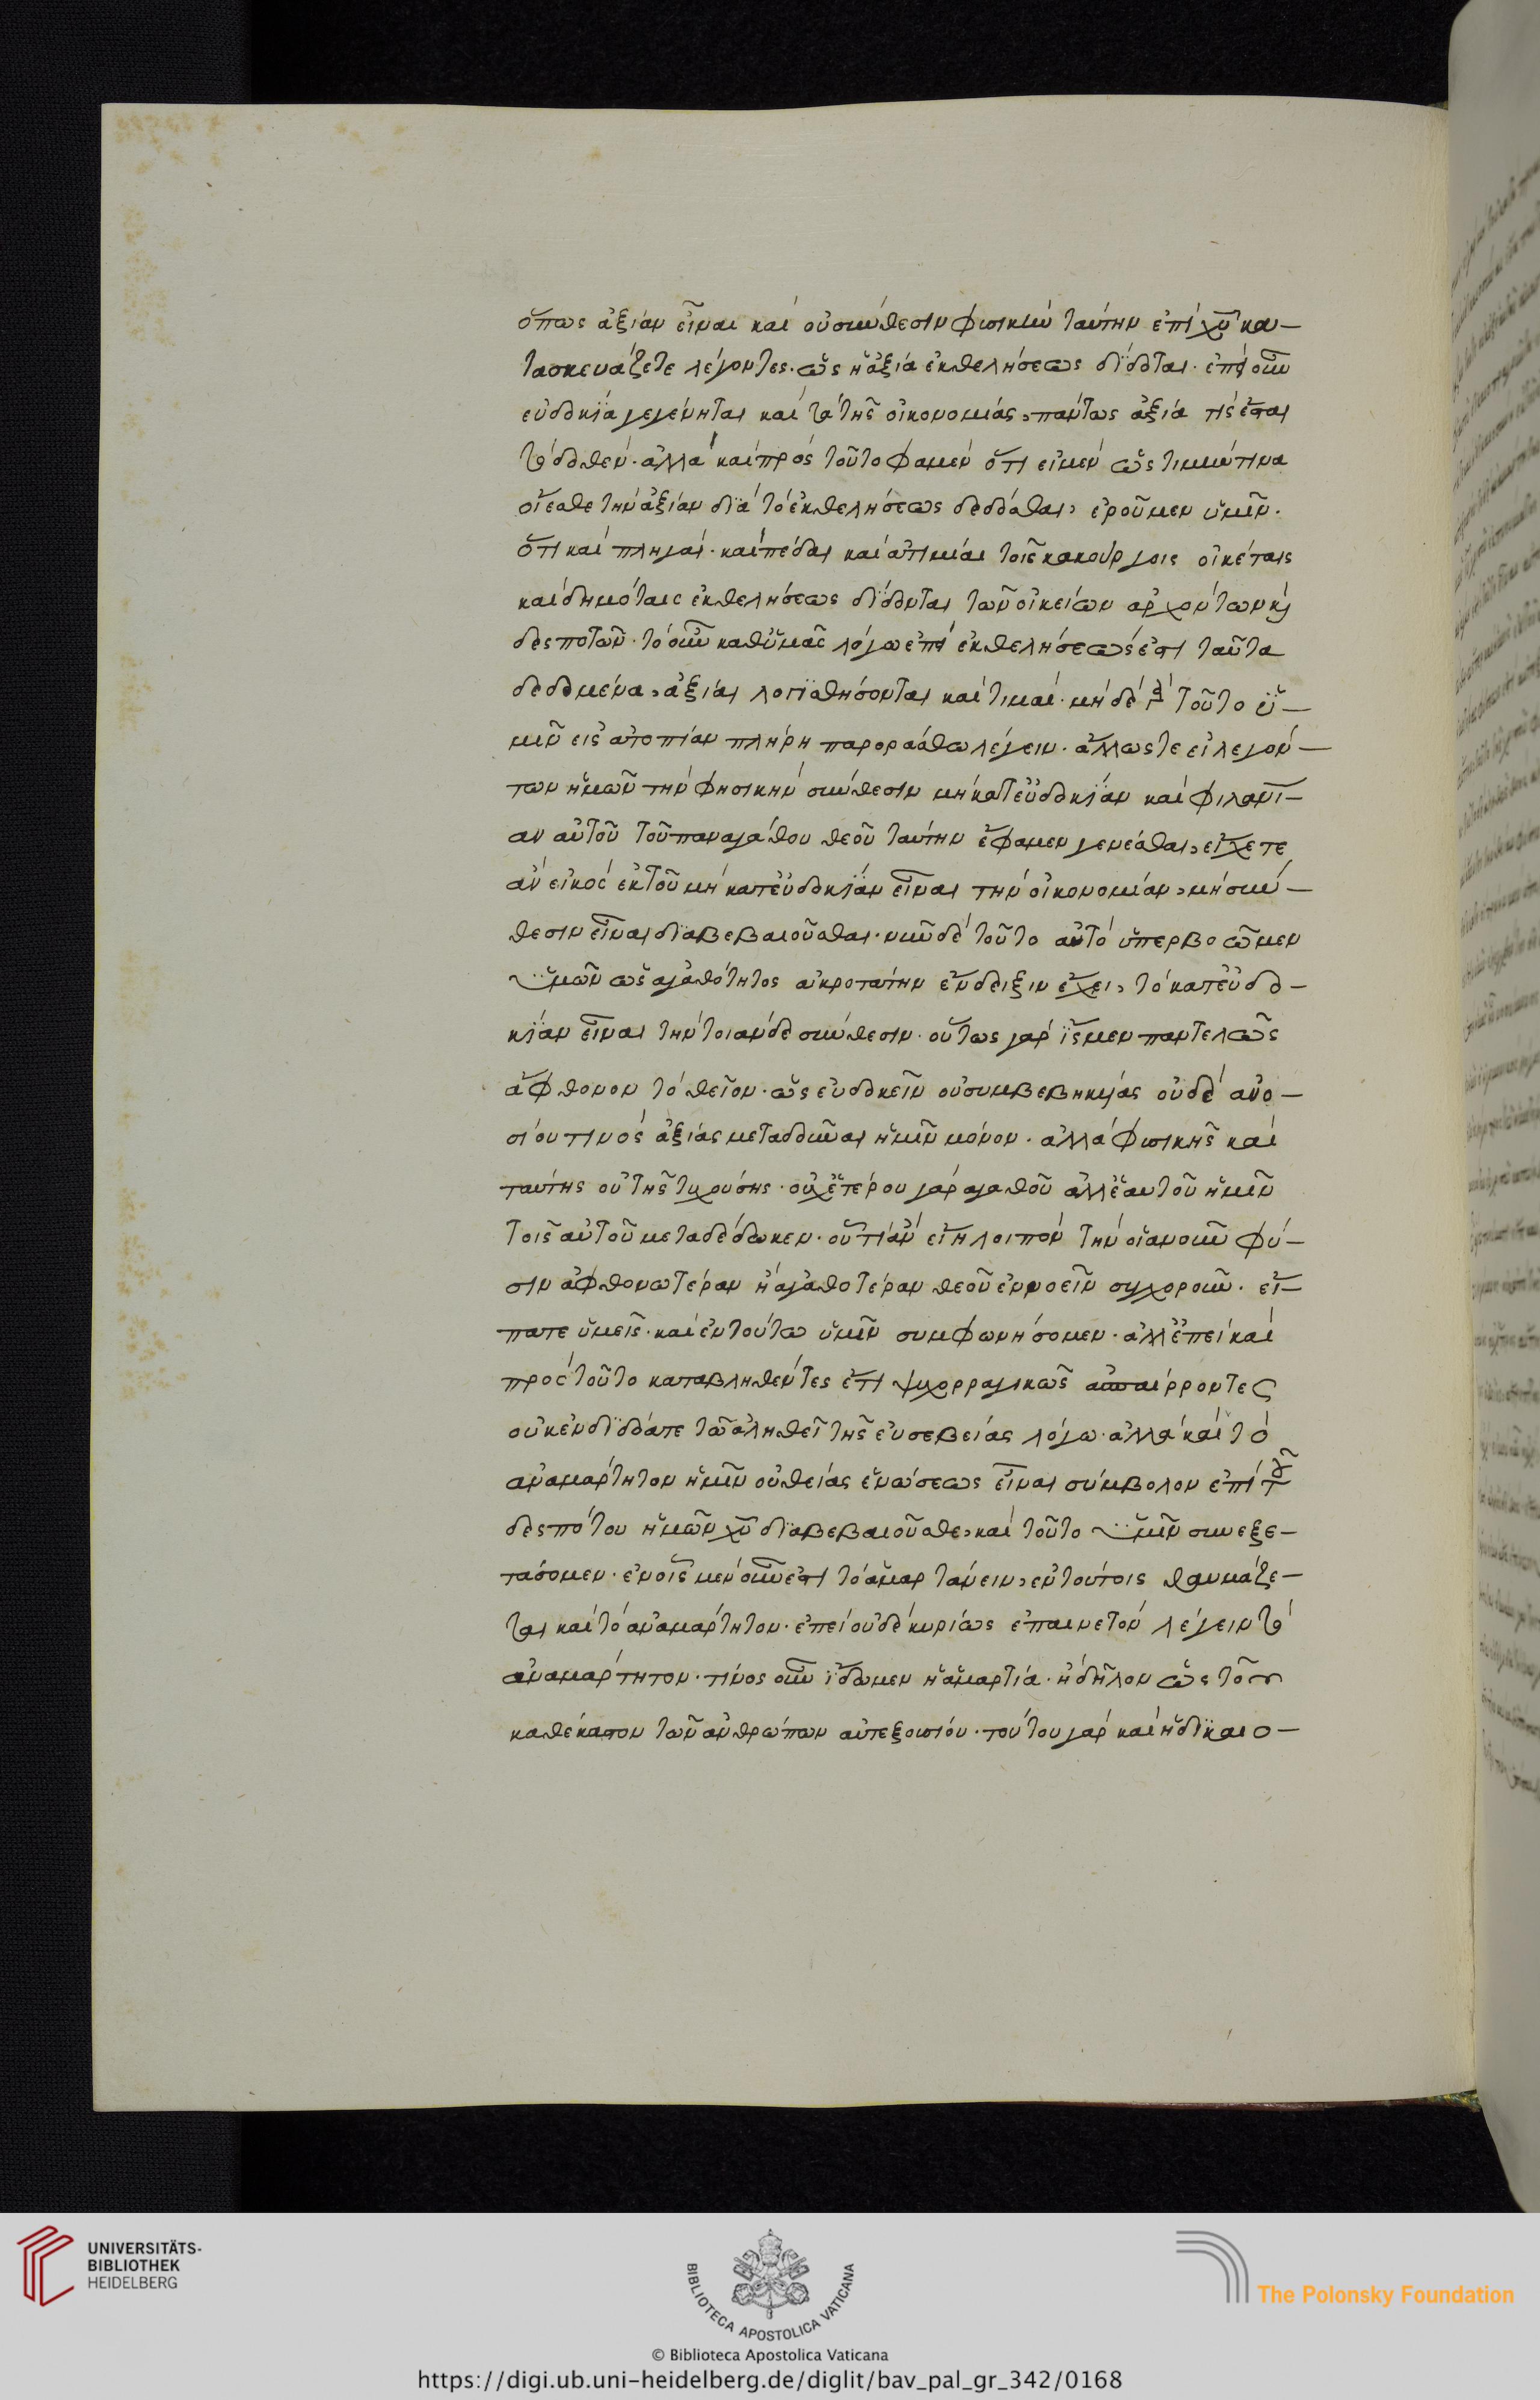 ὅπως ἀξίαν εἶναι καὶ οὐ σύνθεσιν φυσικὴν ταύτην ἐπὶ χυ κα-
τασκευάζετε λέγοντες· ὡς ἡ ἀξία ἐκ θελήσεως δίδοται· ἐπεὶ οὖν
εὐδοκία γεγένηται καὶ τὸ τῆς οἰκονομίας, πάντως ἀξία τίς ἐσται
τὸ δοθέν· ἀλλὰ καὶ πρὸς τοῦτο φαμὲν ὅτι εἰ μὲν ὡς τιμήν τινα
οἴεσθε τὴν ἀξίαν διὰ τὸ ἐκ θελήσεως δεδόσθαι, ἐροῦμεν ὑμῖν·
ὅτι καὶ πληγαὶ· καὶ πέδαι καὶ ἀτιμίαι τοῖς κακούργοις οἰκέταις
καὶ δημόταις ἐκ θελήσεως δίδονται τῶν οἰκείων ἀρχόντων κ
δεσποτῶν· τὸ οὖν καθ' ὑμᾶς λόγω ἐπὶ ἐκ θελήσεώς ἐστι ταῦτα
δεδομένα, ἀξίαι λογισθήσονται καὶ τιμαί· μὴ δὲ τοῦτο ὑ-
μῖν εἰς ἀτοπίαν πλήρη παροράσθω λέγειν· ἄλλως τε εἰ λεγόν-
των ἡμῶν τὴν φησικὴν σύνθεσιν μὴ κατ' εὐδοκίαν καὶ φιλαντ-
αν αὐτοῦ τοῦ παναγάθου θεοῦ ταύτην ἔφαμεν γενέσθαι, εἴχετε
ἂν εἰκὸς ἐκ τοῦ μὴ κατ' εὐδοκίαν εἶναι τὴν οἰκονομίαν, μὴ σύν-
θεσιν εἶναι διαβεβαιοῦσθαι· νῦν δὲ τοῦτο αὐτὸ ὑπερβοῶμεν
ὑμῶν ὡς ἀγαθότητος ἀκροτάτην ἔνδειξιν ἔχει, τὸ κατ' εὐδο-
κίαν εἶναι τὴν τοιάνδε σύνθεσιν· οὕτως γάρ ἴσμεν παντελῶς
ἄφθονον τὸ θεῖον· ὡς εὐδοκεῖν οὐ συμβεβηκυίας οὐδὲ ἀνο-
σίου τινὸς ἀξίας μεταδοῦναι ἡμῖν μόνον· ἀλλὰ φυσικῆς καὶ
ταύτης οὐ τῆς τυχούσης· οὐχ ἑτέρου γάρ ἀγαθοῦ ἀλλ' ἑαυτοῦ ἡμῖν
τοῖς αὐτοῦ μεταδέδωκεν· οὗ τί ἂν εἴη λοιπὸν τὴν οἵαν οὖν φύ-
σιν ἀφθονωτέραν ἢ ἀγαθοτέραν θεοῦ ἐννοεῖν συγχοροῦν· εἴ-
πατε ὑμεῖς· καὶ ἐν τούτω ὑμῖν συμφωνήσομεν· ἀλλ' ἐπεὶ καὶ
πρὸς τοῦτο καταβληθέντες ἔτι ψυχορραγικῶς ἀσπαίρροντες
οὐκ ἐνδίδόατε τῶ ἀληθεῖ τῆς εὐσεβείας λόγω· ἀλλὰ καὶ τὸ
ἀναμάρτητον ἡμῖν οὐ θείας ἑνώσεως εἶναι σύμβολον ἐπὶ τοῦ
δεσπότου ἡμῶν χυ διαβεβαιοῦσθε, καὶ τοῦτο ὑμῖν συνεξε-
τάσομεν· ἐν οἷς μὲν οὖν ἐστι τὸ ἁμαρτάνειν, ἐν τούτοις θαυμάζε-
ται καὶ τὸ ἀναμάρτητον· ἐπεὶ οὐδὲ κυρίως ἐπαινετὸν λέγειν τὸ
ἀναμάρτητον· τίνος οὖν ἴδωμεν ἡ ἁμαρτία· ἢ δῆλον ὡς τοῦ
καθέκαστον τῶν ἀνθρώπων αὐτεξουσίου· τούτου γάρ καὶ ἡ δικαιο-
UNIVERSITÄTS-
BIBLIOTHEK
HEIDELBERG
BIBLIOTECA APOSTOLICA VATICANA
The Polonsky Foundation
© Biblioteca Apostolica Vaticana
https://digi.ub.uni-heidelberg.de/diglit/bav_pal_gr_342/0168